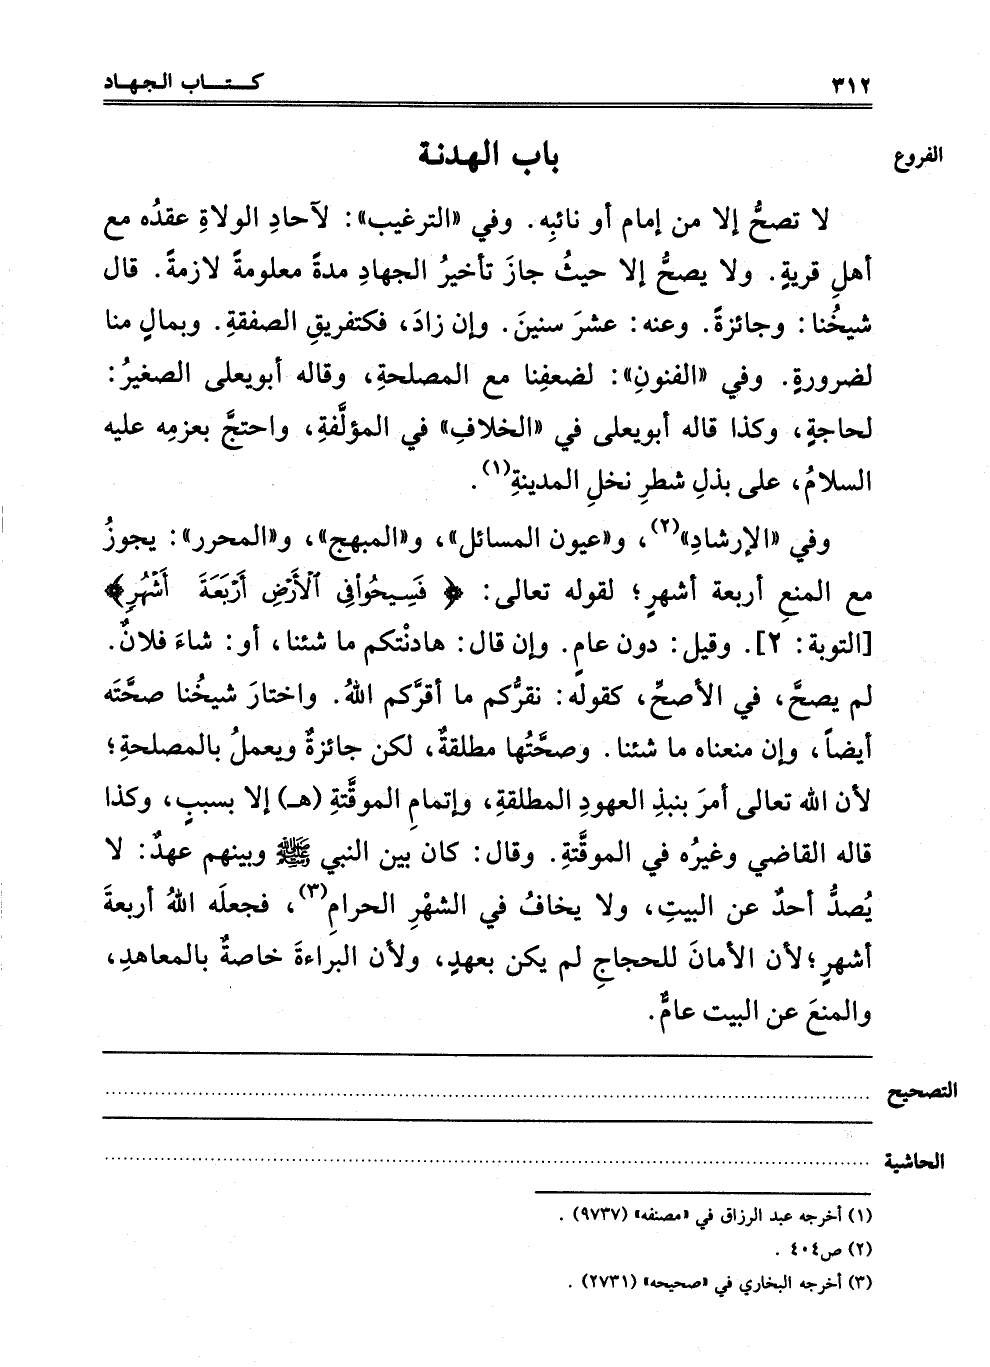 ٣١٢
كـتـــاب الـجـهـاد
الفروع
باب الهدنـة
لا تصحُّ إلا من إمام أو نائبِه. وفي «الترغيب»: لآحادِ الولاةِ عقدُه مع
أهلِ قريةٍ. ولا يصحُّ إلا حيثُ جازَ تأخيرُ الجهادِ مدةً معلومةً لازمةً. قال
شيخُنا: وجائزةً. وعنه: عشرَ سنينَ. وإن زادَ، فكتفريقِ الصفقةِ. وبمالٍ منا
لضرورةٍ. وفي «الفنونِ»: لضعفِنا مع المصلحةِ، وقاله أبويعلى الصغيرُ:
لحاجةٍ، وكذا قاله أبويعلى في «الخلافِ» في المؤلَّفةِ، واحتجَّ بعزمِه عليه
السلامُ، على بذلِ شطرِ نخلِ المدينةِ(١).
وفي «الإرشادِ»(٢)، و«عيون المسائل»، و«المبهج»، و«المحرر»: يجوزُ
مع المنعِ أربعة أشهرٍ؛ لقوله تعالى: ﴿ فَسِيحُوا۟ فِى ٱلْأَرْضِ أَرْبَعَةَ أَشْهُرٍ﴾
[التوبة: ٢]. وقيل: دون عامٍ. وإن قال: هادنْتكم ما شئنا، أو: شاءَ فلانٌ.
لم يصحَّ، في الأصحِّ، كقوله: نقرُّكم ما أقرَّكم اللهُ. واختارَ شيخُنا صحَّتَه
أيضاً، وإن منعناه ما شئنا. وصحَّتُها مطلقةٌ، لكن جائزةٌ ويعملُ بالمصلحةِ؛
لأن الله تعالى أمرَ بنبذِ العهودِ المطلقةِ، وإتمامِ الموقَّتةِ (هـ) إلا بسببٍ، وكذا
قاله القاضي وغيرُه في الموقَّتةِ. وقال: كان بين النبي ﷺ وبينهم عهدٌ: لا
يُصدُّ أحدٌ عن البيتِ، ولا يخافُ في الشهْرِ الحرامِ(٣)، فجعلَه اللهُ أربعةَ
أشهرٍ؛ لأن الأمانَ للحجاجِ لم يكن بعهدٍ، ولأن البراءةَ خاصةٌ بالمعاهدِ،
والمنعَ عن البيت عامٌّ.
التصحيح
الحاشية
(١) أخرجه عبد الرزاق في «مصنفه» (٩٧٣٧) .
(٢) ص٤٠٤ .
(٣) أخرجه البخاري في «صحيحه» (٢٧٣١) .